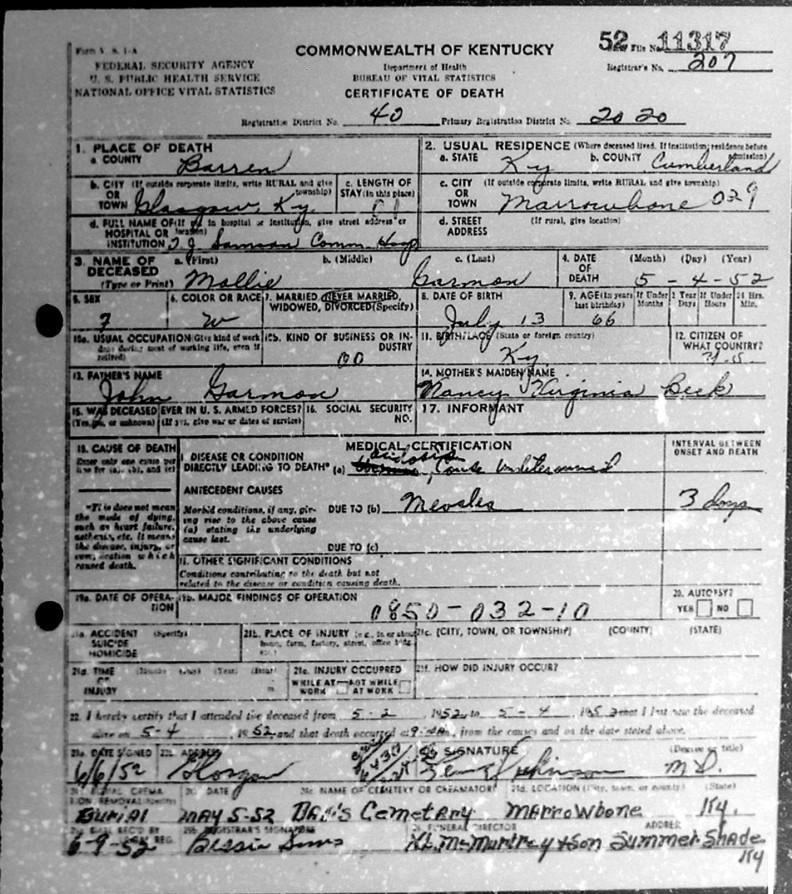 Form V. S. 1-A
COMMONWEALTH OF KENTUCKY
52 File No. 11317
FEDERAL SECURITY AGENCY
Department of Health
Registrar's No. 207
U. S. PUBLIC HEALTH SERVICE
BUREAU OF VITAL STATISTICS
NATIONAL OFFICE VITAL STATISTICS
CERTIFICATE OF DEATH
Registration District No. 40 Primary Registration District No. 2020
1. PLACE OF DEATH
a. COUNTY Barren
2. USUAL RESIDENCE (Where deceased lived. If institution: residence before admission)
a. STATE Ky b. COUNTY Cumberland
b. CITY (If outside corporate limits, write RURAL and give township)
OR TOWN Glasgow, Ky.
c. LENGTH OF STAY (in this place)
c. CITY (If outside corporate limits, write RURAL and give township)
OR TOWN Marrowbone 029
d. FULL NAME OF (If not in hospital or institution, give street address or location)
HOSPITAL OR INSTITUTION T J Samson Comm. Hosp
d. STREET ADDRESS (If rural, give location)
3. NAME OF DECEASED (Type or Print)
a. (First) b. (Middle) c. (Last)
Mollie Garmon
4. DATE OF DEATH (Month) (Day) (Year)
5 - 4 - 52
5. SEX
F
6. COLOR OR RACE
W
7. MARRIED, NEVER MARRIED, WIDOWED, DIVORCED (Specify)
8. DATE OF BIRTH
July 13
9. AGE (In years last birthday) If Under 1 Year Months Days If Under 24 Hrs. Hours Min.
66
10a. USUAL OCCUPATION (Give kind of work done during most of working life, even if retired)
10b. KIND OF BUSINESS OR INDUSTRY
00
11. BIRTHPLACE (State or foreign country)
Ky
12. CITIZEN OF WHAT COUNTRY?
13. FATHER'S NAME
John Garmon
14. MOTHER'S MAIDEN NAME
Nancy Virginia Beck
15. WAS DECEASED EVER IN U. S. ARMED FORCES?
(Yes, no, or unknown) (If yes, give war or dates of service)
16. SOCIAL SECURITY NO.
17. INFORMANT
18. CAUSE OF DEATH
Enter only one cause per line for (a), (b), and (c)
MEDICAL CERTIFICATION
INTERVAL BETWEEN ONSET AND DEATH
I. DISEASE OR CONDITION DIRECTLY LEADING TO DEATH* (a) Acidosis, Cause Undetermined
*This does not mean the mode of dying, such as heart failure, asthenia, etc. It means the disease, injury, or complication which caused death.
ANTECEDENT CAUSES
Morbid conditions, if any, giving rise to the above cause (a) stating the underlying cause last.
DUE TO (b) Measles 3 days
DUE TO (c)
II. OTHER SIGNIFICANT CONDITIONS
Conditions contributing to the death but not related to the disease or condition causing death.
19a. DATE OF OPERATION
19b. MAJOR FINDINGS OF OPERATION
0850-032-10
20. AUTOPSY?
YES NO
21a. ACCIDENT SUICIDE HOMICIDE (Specify)
21b. PLACE OF INJURY (e.g., in or about home, farm, factory, street, office bldg., etc.)
21c. (CITY, TOWN, OR TOWNSHIP) (COUNTY) (STATE)
21d. TIME OF INJURY (Month) (Day) (Year) (Hour) m
21e. INJURY OCCURRED
WHILE AT WORK NOT WHILE AT WORK
21f. HOW DID INJURY OCCUR?
22. I hereby certify that I attended the deceased from 5-2 1952, to 5-4 1952 that I last saw the deceased
alive on 5-4 1952, and that death occurred at 9- m., from the causes and on the date stated above.
23a. DATE SIGNED
6/6/52
23b. ADDRESS
Glasgow
SIGNATURE (Degree or title)
M D.
24a. BURIAL, CREMATION, REMOVAL (Specify)
BuriAl
DATE
MAY 5-52
24c. NAME OF CEMETERY OR CREMATORY
Cemetary
24d. LOCATION (City, town, or county) (State)
MArrowbone Ky.
DATE REC'D BY LOCAL REG.
6-9-52
REGISTRAR'S SIGNATURE
Bessie
FUNERAL DIRECTOR ADDRESS
McMurtrey + Son Summer Shade Ky